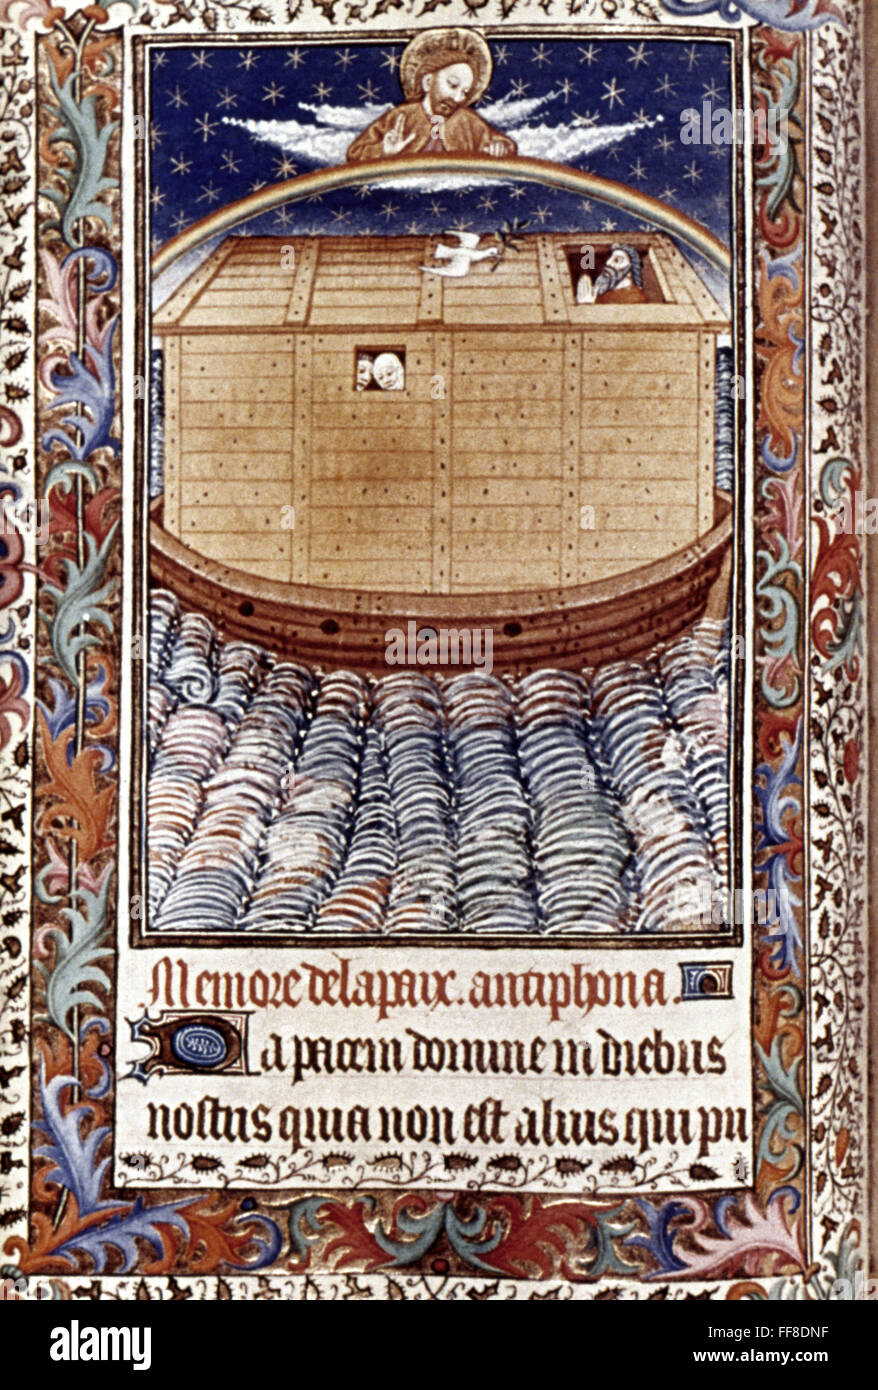 Memore de la paix. antiphona.
Da pacem domine in diebus
nostris quia non est alius qui pu
alamy
Image ID: FF8DNF
www.alamy.com